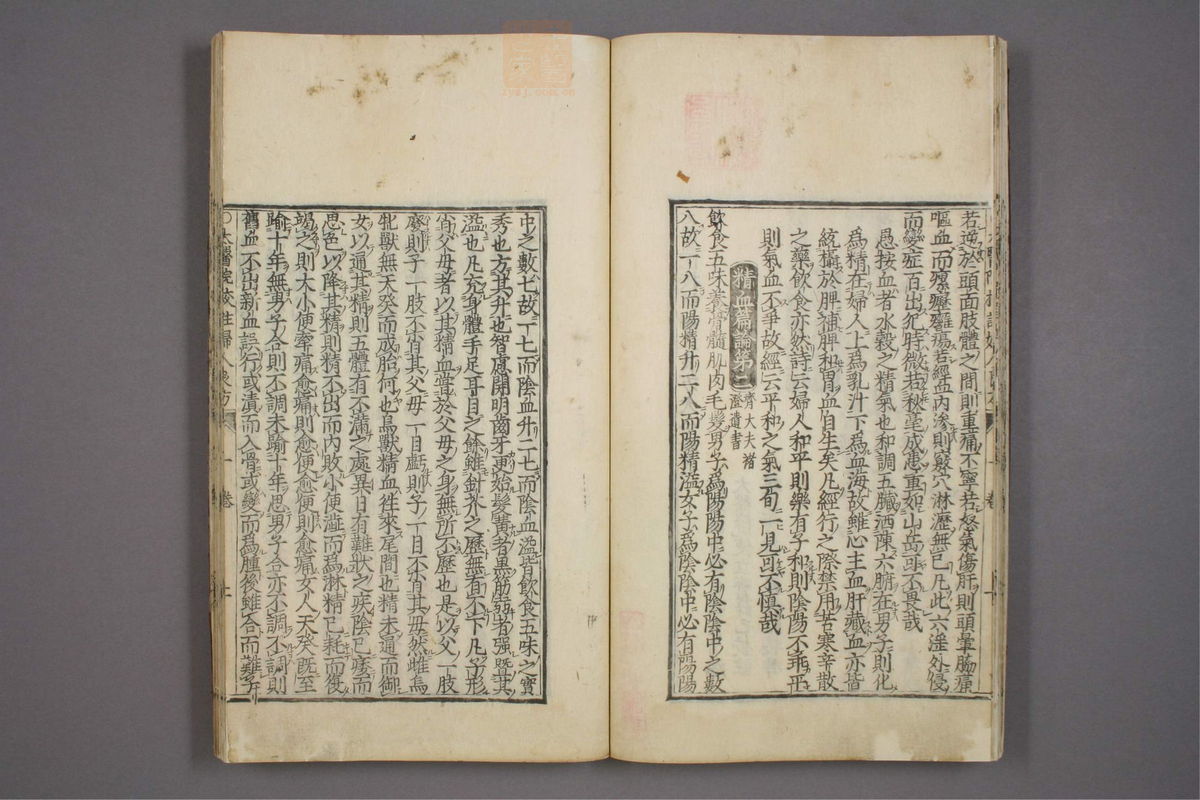 若逆於頭面肢體之間則重痛不寧若怒氣傷肝則頭暈脇痛
嘔血而瘰癧癰瘍若經血內滲則竅穴淋瀝無已凡此六淫外侵
而變症百出犯時微若秋毫成患重如山岳可不畏哉
愚按血者水穀之精氣也和調五臟洒陳六腑在男子則化
為精在婦人上為乳汁下為血海故雖心主血肝藏血亦皆
統攝於脾補脾和胃血自生矣凡經行之際禁用苦寒辛散
之藥飲食亦然詩云婦人和平則樂有子和則陰陽不乖平
則氣血不爭故經云平和之氣三旬一見可不慎哉
精血篇論第二
齊大夫褚
澄遺書
飲食五味養骨髓肌肉毛髮男子為陽陽中必有陰陰中之數
八故一八而陽精升二八而陽精溢女子為陰陰中必有陽陽
中之數七故一七而陰血升二七而陰血溢皆飲食五味之實
秀也方其升也智慮開明齒牙更始髮黃者黑筋弱者强曁其
溢也凡充身體手足耳目之餘雖針芥之歷無有不下凡子形
肖父母者以其精血嘗於父母之身無所不歷也是以父一肢
廢則子一肢不肖其父母一目虧則子一目不肖其母然雌鳥
牝獸無天癸而成胎何也鳥獸精血徃來尾間也精未通而御
女以通其精則五體有不滿之處異日有難狀之疾陰已痿而
思色以降其精則精不出而內敗小便澁而為淋精已耗而復
竭之則大小便牽痛愈痛則愈便愈便則愈痛女人天癸既至
踰十年無男子合則不調未踰十年思男子合亦不調不調則
舊血不出新血誤行或漬而入骨或變而為腫後雖合而難子
太醫院校註婦人良方 一卷